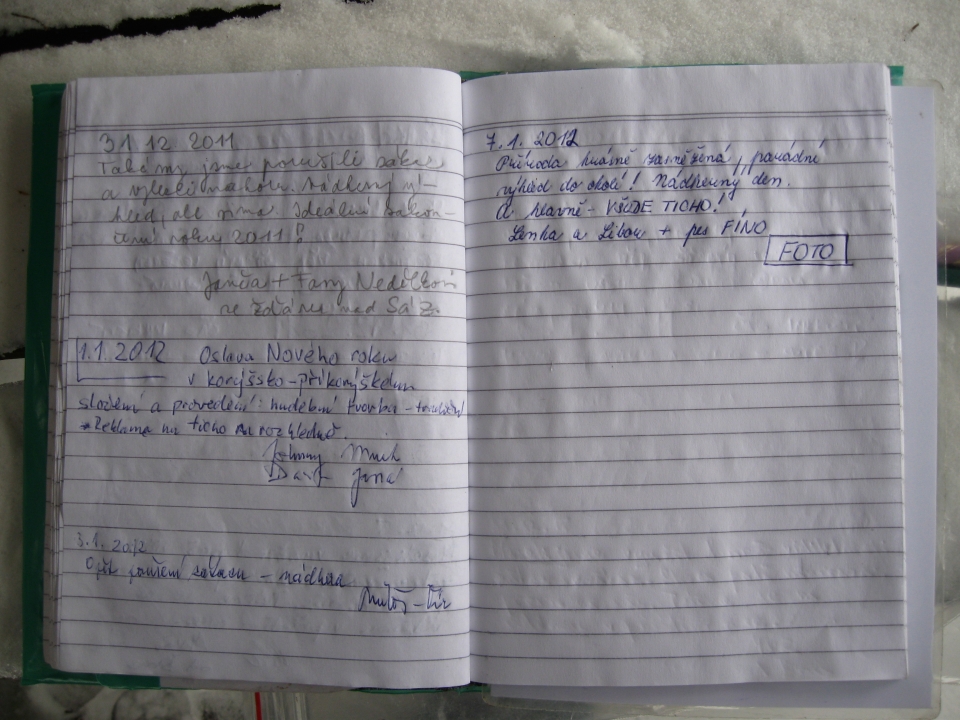 31.12 2011
Také my jsme porušili zákaz
a vylezli nahoru. Nádherný vý-
hled, ale zima. Ideální zakon-
čení roku 2011!
Janča + Fany Nedělkovi
ze Žďáru nad Sáz.
1.1.2012 Oslava Nového roku
v
složení a provedení: hudební tvorba -
Reklama na ticho na rozhledně.
Johnny
David
3.1.2012
Opět porušení zákazu - nádhera
7.1.2012
Příroda krásně zasněžená, parádní
výhled do okolí! Nádherný den.
A hlavně - VŠUDE TICHO!
Lenka a Libor + pes FÍNO
FOTO